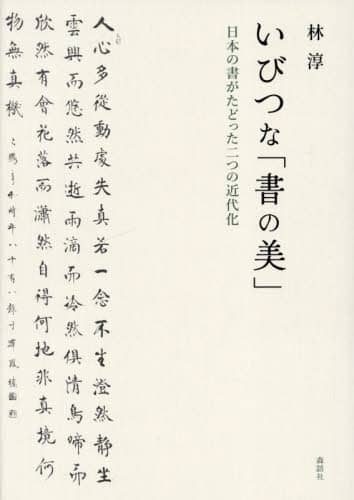 林 淳
いびつな「書の美」
日本の書がたどった二つの近代化
人心多從動處失真若一念不生澄然静坐
雲興而悠然共逝雨滴而冷然俱清鳥啼而
欣然有會花落而瀟然自得何地非真境何
物無真機
森話社